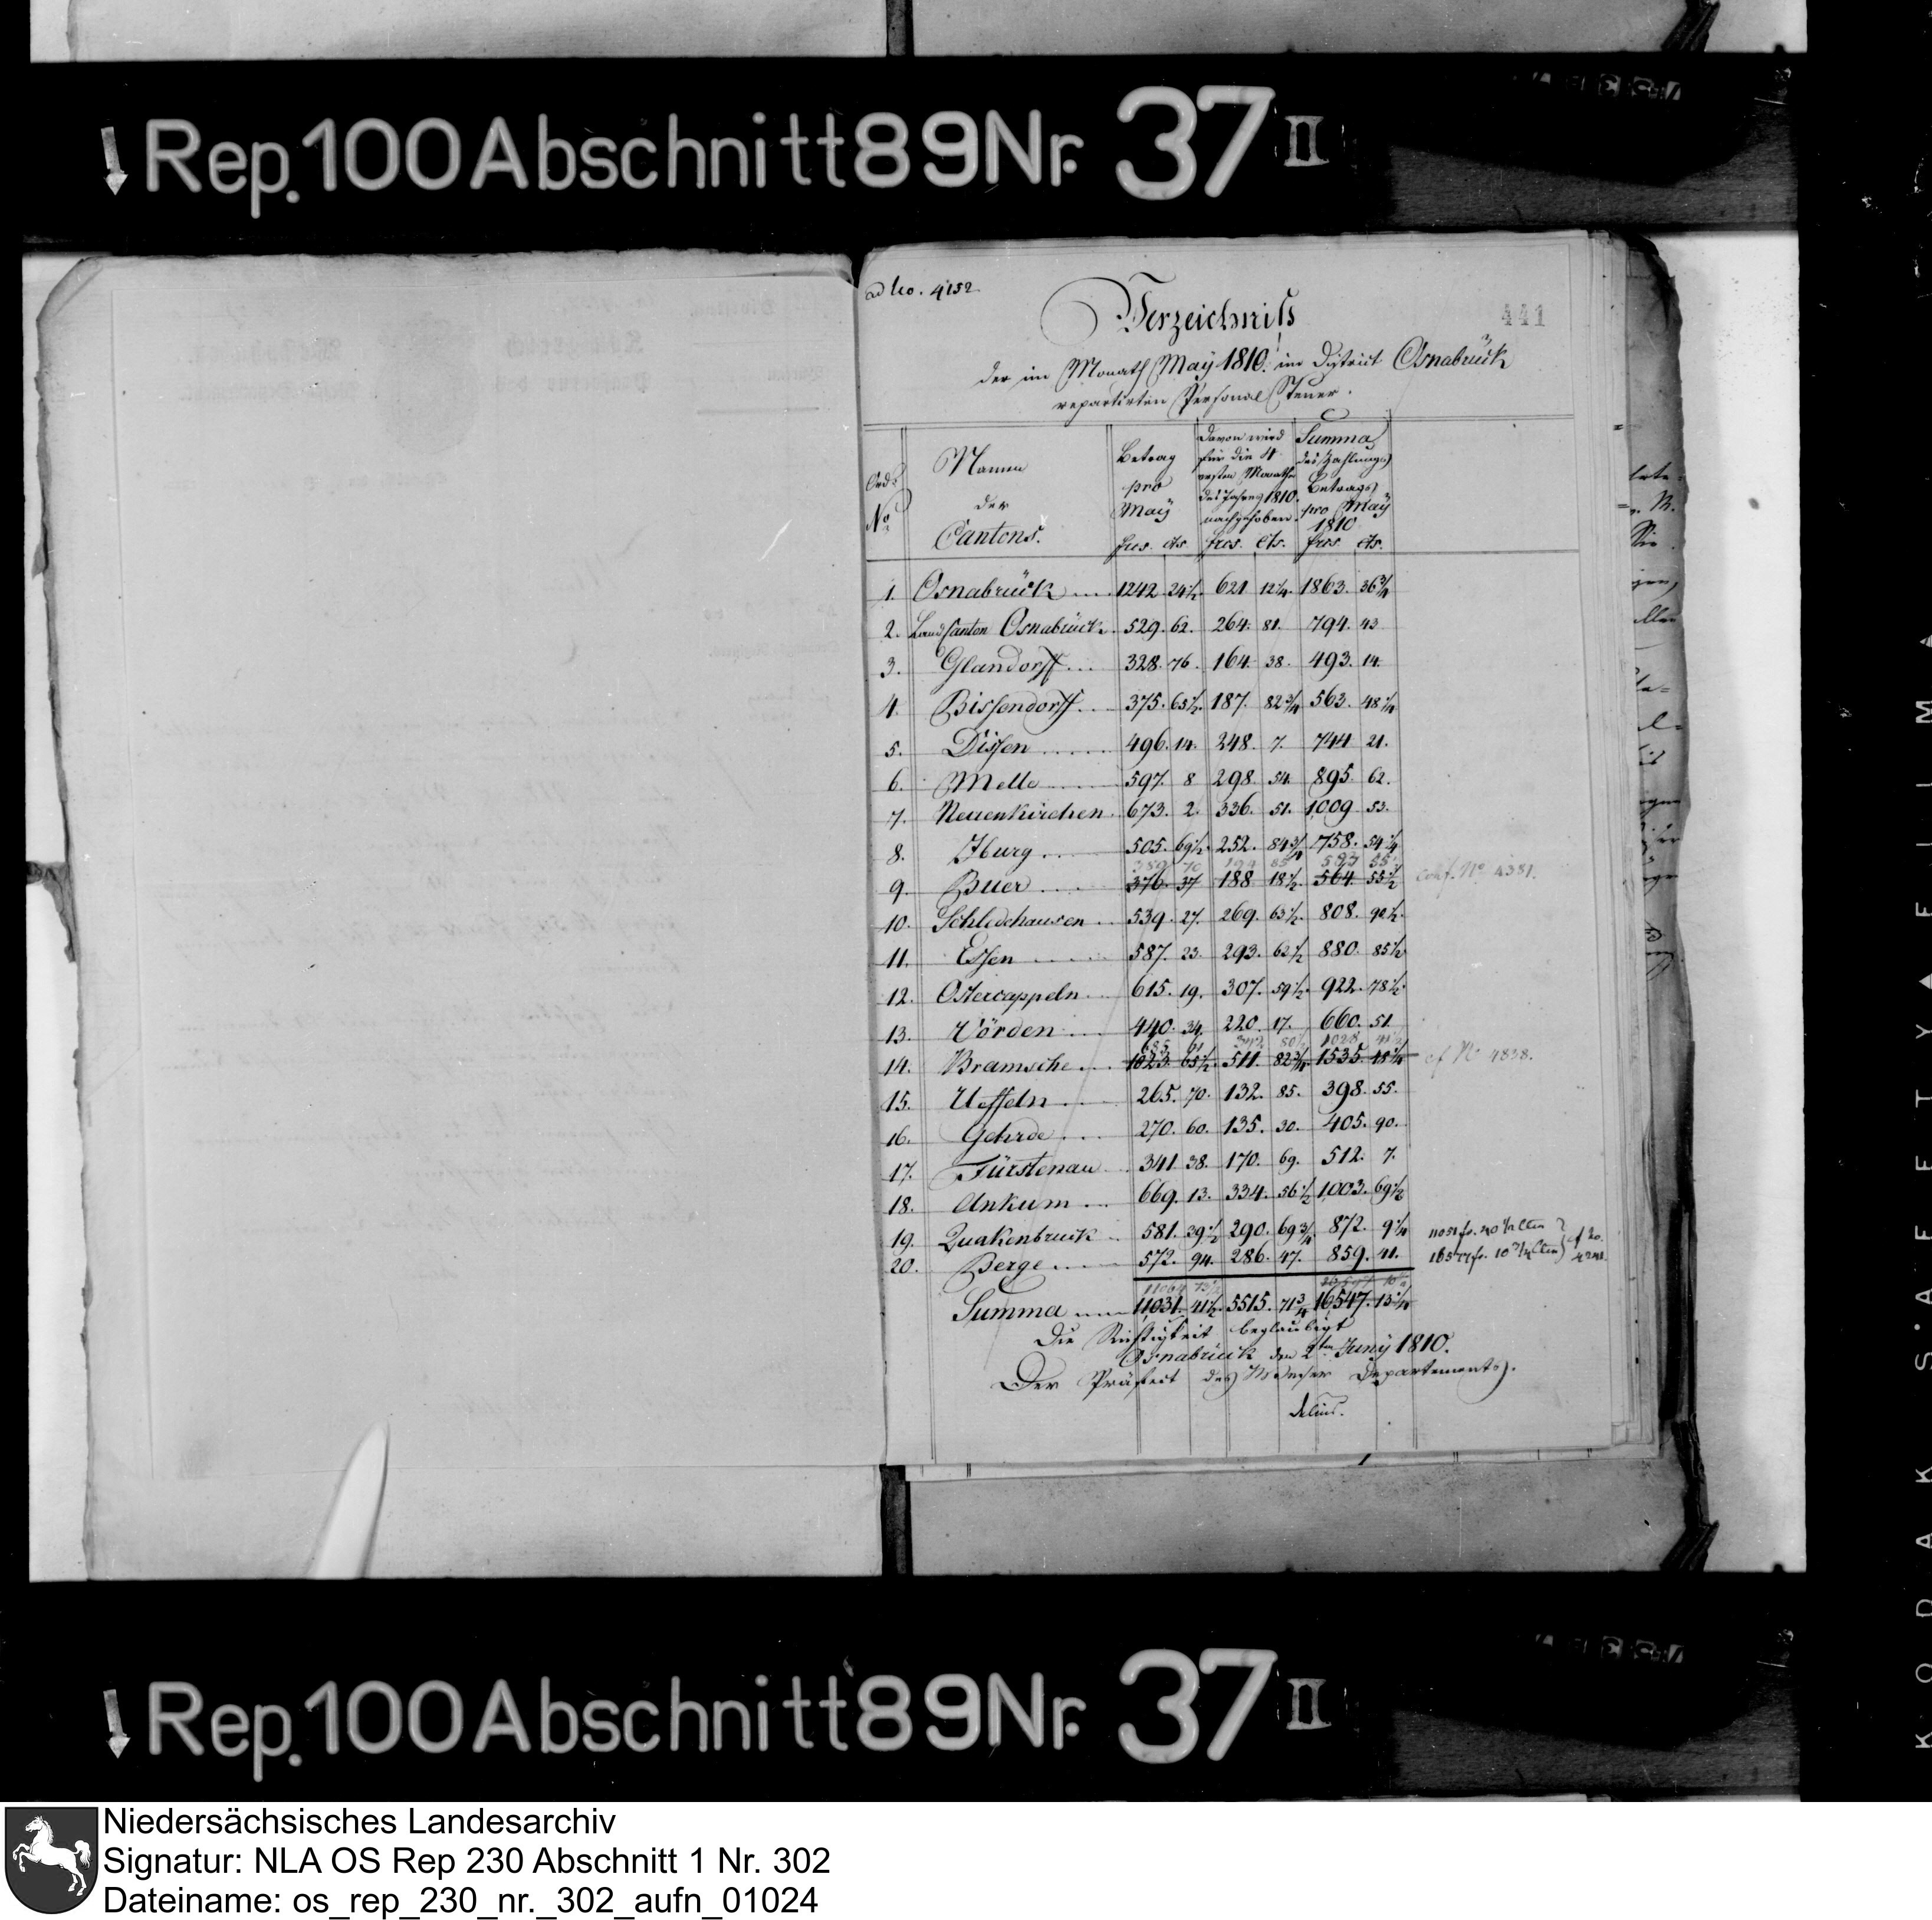 Rep.100Abschnitt89Nr. 37 II
ad No. 4152
441
Verzeichniß
der im Monath May 1810. im District Osnabrück
repartirten Personal Steuer.
Ord. No. | Namen der Cantons. | Betrag pro May | Davon wird für die 4 ersten Monathe des Jahres 1810. nachgehoben. | Summa des Zahlungs Betrags pro May 1810
frcs. cts. frcs. cts. frcs cts.
1. Osnabrück .... 1242 24½. 621 12¼. 1863. 36¾
2. Land Canton Osnabrück. 529. 62. 264. 81. 794. 43
3. Glandorff ... 328. 76. 164. 38. 493. 14.
4. Bissendorff ... 375. 65½. 187. 82¾ 563. 48¼
5. Dissen ..... 496. 14. 248. 7. 744 21.
6. Melle ..... 597. 8 298. 54. 895. 62.
7. Neuenkirchen. 673. 2. 336. 51. 1009 53.
8. Iburg ... 505. 69½. 252. 84¾ 758. 54¼
389 70 194 85 583 55
9. Buer .... 376. 37 188 18½. 564. 55½ conf. No 4381.
10. Schledehausen .. 539. 27. 269. 63½. 808. 90½.
11. Essen ..... 587. 23. 293. 62½ 880. 85½
12. Ostercappeln .. 615. 19. 307. 59½. 922. 78½.
13. Vörden .... 440. 34. 220. 17. 660. 51.
685 61 342 80½ 1028 41½
14. Bramsche ... 1023. 65½. 511. 82¾ 1535. 48¼ cf No 4838.
15. Ueffeln .... 265. 70. 132. 85. 398. 55.
16. Gehrde .... 270. 60. 135. 30. 405. 90.
17. Fürstenau .. 341 38. 170. 69. 512. 7.
18. Ankum ... 669. 13. 334. 56½ 1003. 69½
19. Quakenbruck .. 581. 39½ 290. 69¾ 872. 9¼
20. Berge ..... 572. 94. 286. 47. 859. 41.
Summa .... 11031. 41½. 5515. 71¾ 16547. 13¼
Die Richtigkeit beglaubigt
Osnabrück den 2ten Juny 1810.
Der Präfect des Weser Departements.
Delius.
Rep.100Abschnitt89Nr. 37 II
KODAK SAFETY FILM
Niedersächsisches Landesarchiv
Signatur: NLA OS Rep 230 Abschnitt 1 Nr. 302
Dateiname: os_rep_230_nr._302_aufn_01024